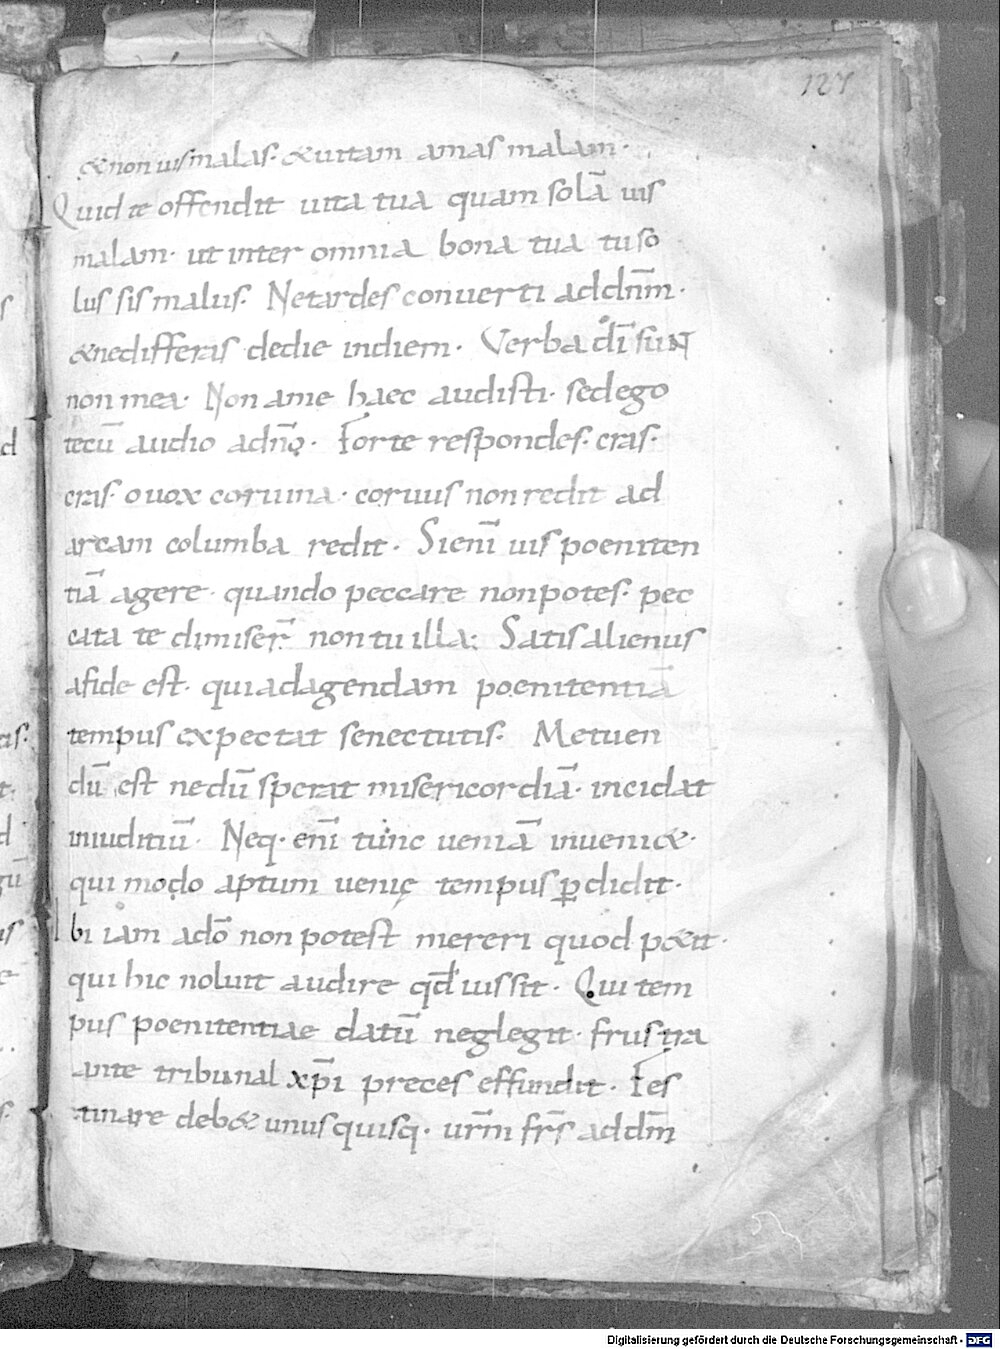 127
& non uis malas· & uitam amas malam·
Quid te offendit uita tua quam solā uis
malam· ut inter omnia bona tua tu so
lus sis malus· Ne tardes conuerti ad dn̄m·
& ne differas de die in diem· Verba dī sunt
non mea· Non a me haec audisti· sed ego
tecū audio a dn̄o· Forte respondes· cras·
cras· o uox coruina· coruus non redit ad
arcam columba redit· Si enī uis poeniten
tiā agere· quando peccare non potes· pec
cata te dimiser̄ non tu illa; Satis alienus
a fide est· qui ad agendam poenitentiā
tempus expectat senectutis· Metuen
dū est ne dū sperat misericordiā· incidat
in iuditiū· Neq· enī tunc ueniā inueni&·
qui modo aptum uenię tempus ꝑdidit·
Ibi iam a dō non potest mereri quod p&it·
qui hic noluit audire qd̄ iussit· Qui tem
pus poenitentiae datū neglegit· frustra
ante tribunal xp̄i preces effundit· Fes
tinare deb& unusquisq· urm̄ frs̄ ad dm̄
Digitalisierung gefördert durch die Deutsche Forschungsgemeinschaft - DFG